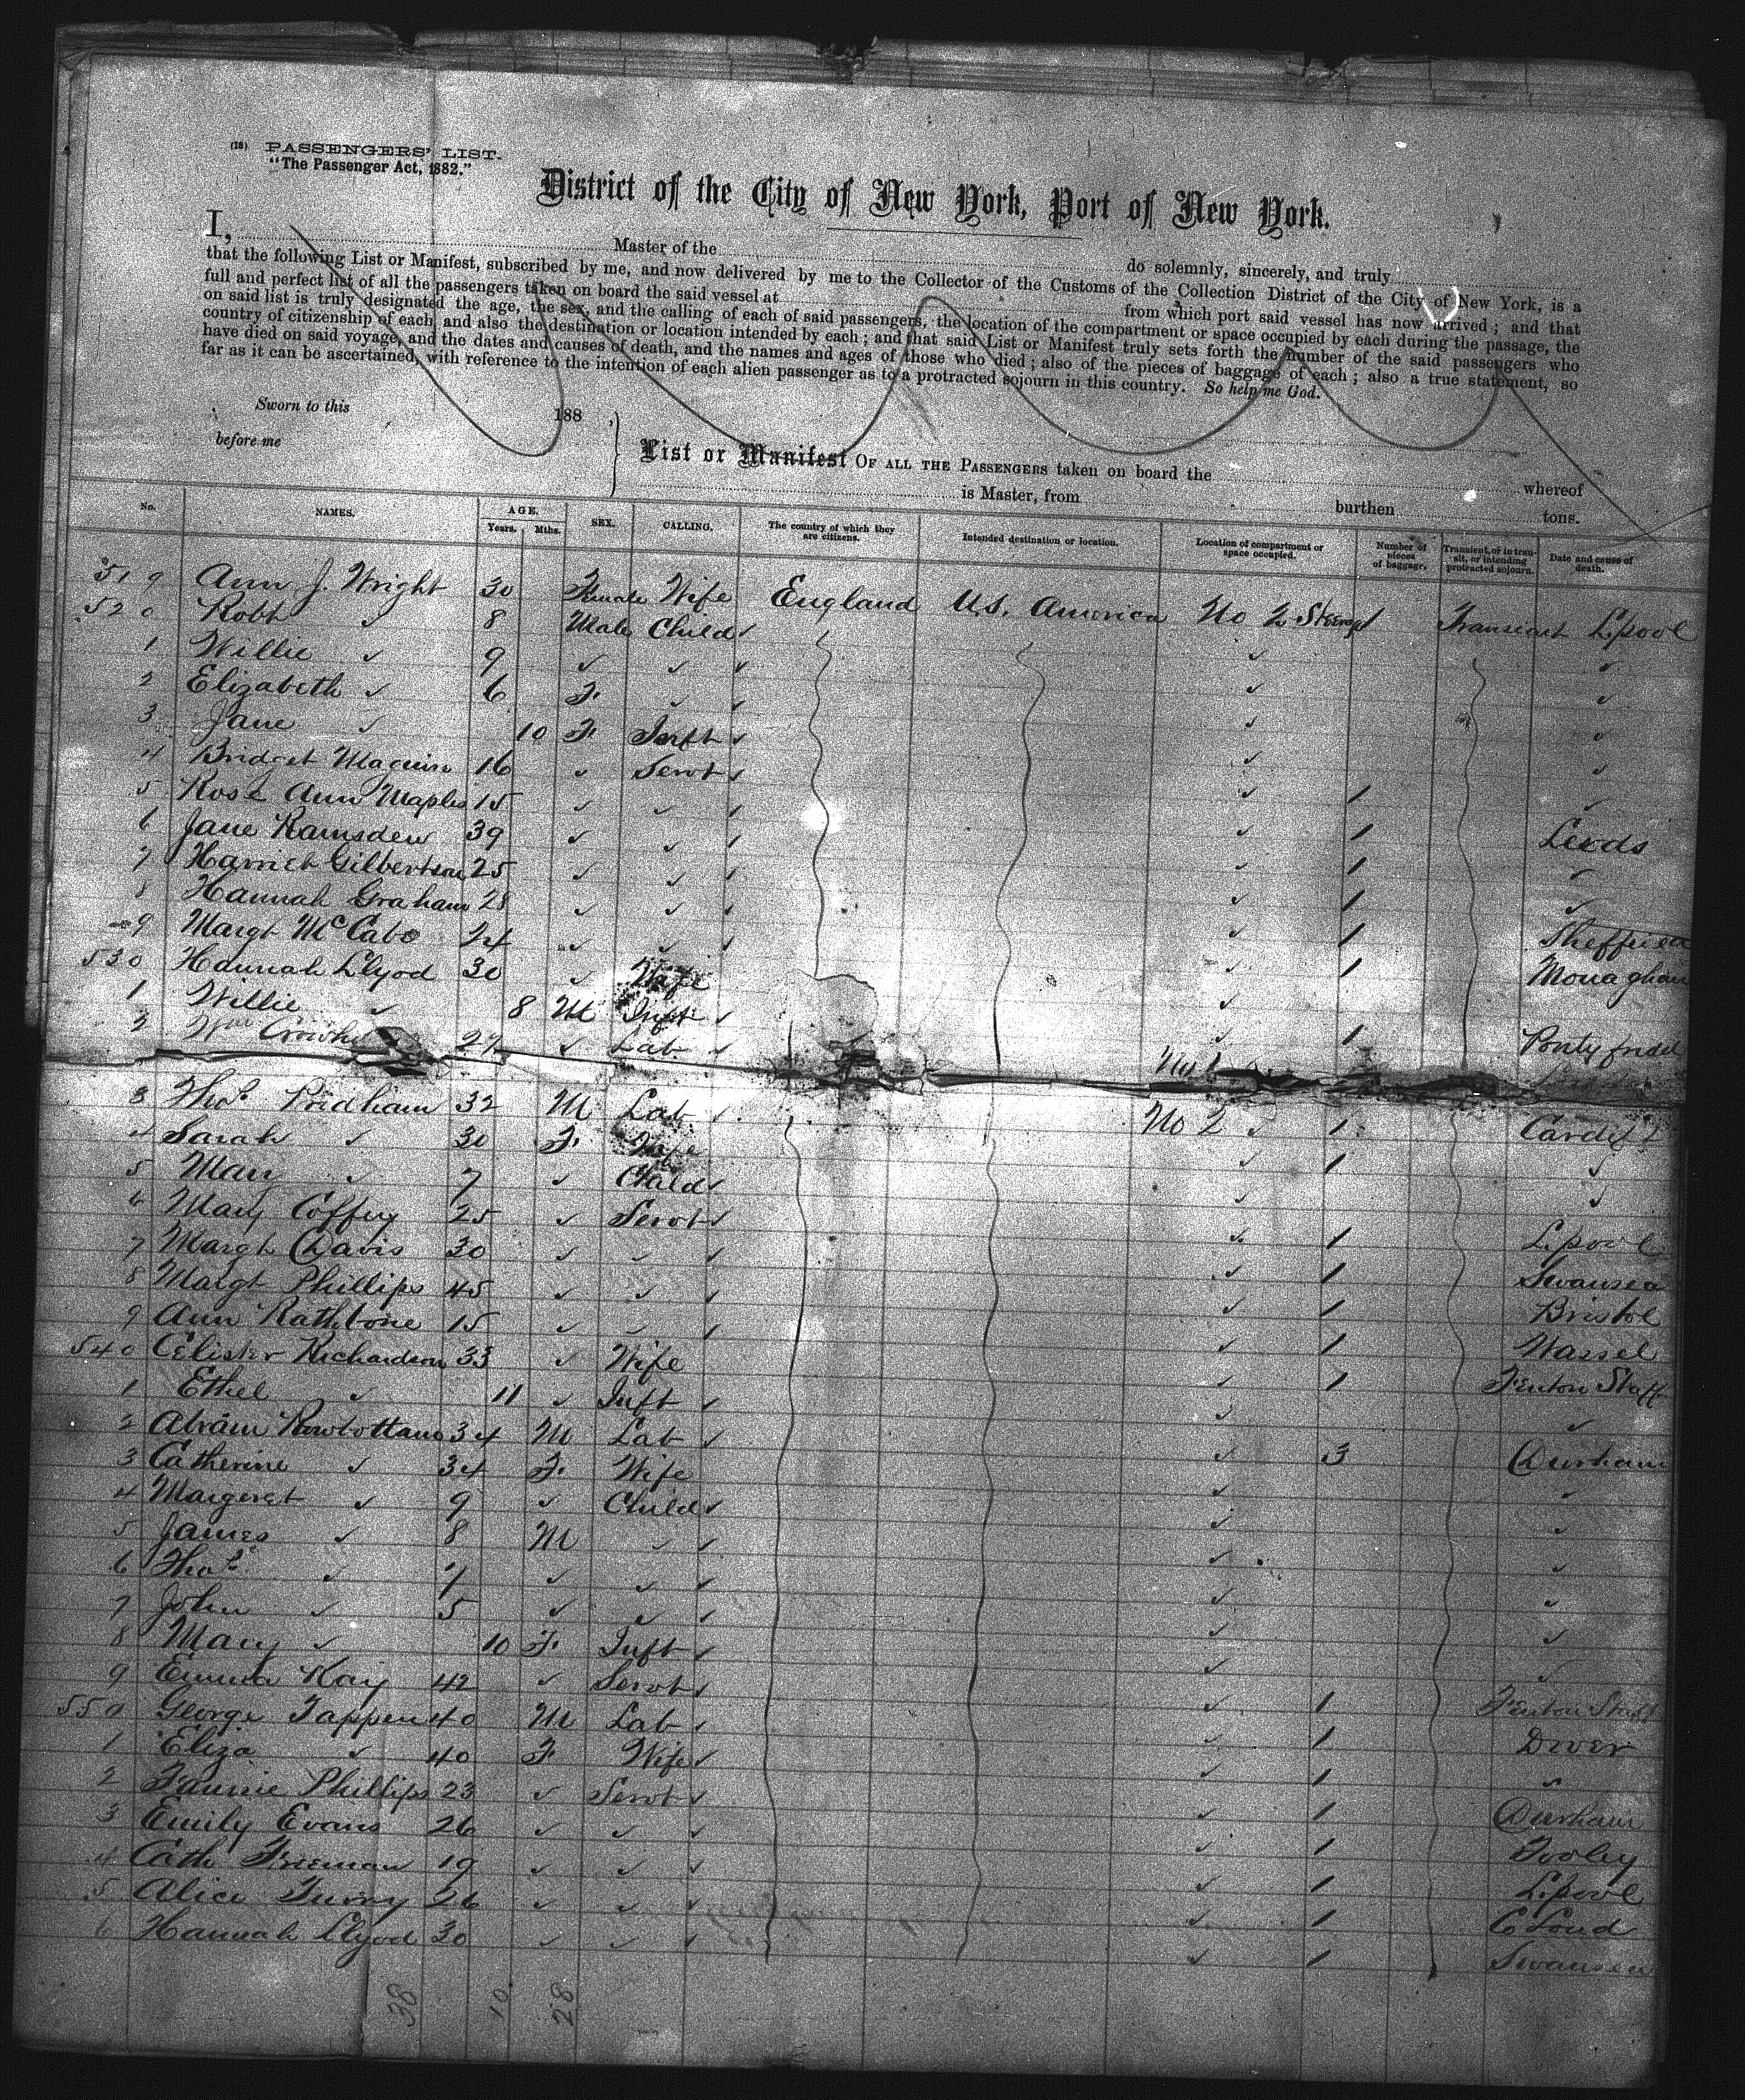 (18) PASSENGERS' LIST.
"The Passenger Act, 1882."
District of the City of New York, Port of New York.
I, Master of the do solemnly, sincerely, and truly
that the following List or Manifest, subscribed by me, and now delivered by me to the Collector of the Customs of the Collection District of the City of New York, is a
full and perfect list of all the passengers taken on board the said vessel at from which port said vessel has now arrived; and that
on said list is truly designated the age, the sex, and the calling of each of said passengers, the location of the compartment or space occupied by each during the passage, the
country of citizenship of each, and also the destination or location intended by each; and that said List or Manifest truly sets forth the number of the said passengers who
have died on said voyage, and the dates and causes of death, and the names and ages of those who died; also of the pieces of baggage of each; also a true statement, so
far as it can be ascertained, with reference to the intention of each alien passenger as to a protracted sojourn in this country. So help me God.
Sworn to this 188
before me
List or Manifest OF ALL THE PASSENGERS taken on board the whereof
is Master, from burthen tons.
No. NAMES. AGE. Years. Mths. SEX. CALLING. The country of which they are citizens. Intended destination or location. Location of compartment or space occupied. Number of pieces of baggage. Transient, or in transit, or intending protracted sojourn. Date and cause of death.
519 Ann J. Wright 30 Female Wife England U.S. America No 2 Steerage 1 Transient L.pool
520 Robt ✓ 8 Male Child ✓ ✓ ✓
1 Willie ✓ 9 ✓ ✓ ✓ ✓ ✓
2 Elizabeth ✓ 6 F. ✓ ✓ ✓ ✓
3 Jane ✓ 10 F. Inft ✓ ✓ ✓
4 Bridget Maguire 16 ✓ Servt ✓ ✓ 1 ✓
5 Rose Ann Maples 15 ✓ ✓ ✓ ✓ 1 Leeds
6 Jane Ramsden 39 ✓ ✓ ✓ ✓ 1 ✓
7 Harriet Gilbertson 25 ✓ ✓ ✓ ✓ 1 ✓
8 Hannah Graham 28 ✓ ✓ ✓ ✓ 1 Sheffield
9 Margt McCabe 24 ✓ ✓ ✓ ✓ 1 Monaghan
530 Hannah Llyod 30 ✓ Wife ✓
1 Willie ✓ 8 M Inft ✓ ✓ 1
2 Wm 27 ✓ Lab ✓ No 1
3 Thos. Pridham 32 M Lab ✓ No 2 ✓ 1 Cardiff
4 Sarah ✓ 30 F. Wife ✓ 1 ✓
5 Mary ✓ 7 ✓ Child ✓ ✓ ✓
6 Mary Coffey 25 ✓ Servt ✓ ✓ 1 L.pool
7 Margt Davis 30 ✓ ✓ ✓ ✓ 1 Swansea
8 Margt Phillips 45 ✓ ✓ ✓ ✓ 1 Bristol
9 Ann Rathbone 15 ✓ ✓ ✓ ✓ 1 Wassel
540 Richardson 33 ✓ Wife ✓ 1 Fenton Staff
1 Ethel ✓ 11 ✓ Inft ✓ ✓ ✓
2 Abram Rowbottam 34 M Lab ✓ ✓ 3 Durham
3 Catherine ✓ 34 F. Wife ✓ ✓
4 Margeret ✓ 9 ✓ Child ✓ ✓ ✓
5 James ✓ 8 M ✓ ✓ ✓ ✓
6 Thos. ✓ 7 ✓ ✓ ✓ ✓ ✓
7 John ✓ 5 ✓ ✓ ✓ ✓ ✓
8 Mary ✓ 10 F. Inft ✓ ✓ ✓
9 Emma Kay 42 ✓ Servt ✓ ✓ 1 Fenton Staff
550 George Tappen 40 M Lab ✓ ✓ 1 Dover
1 Eliza ✓ 40 F Wife ✓ ✓ 1 ✓
2 Fannie Phillips 23 ✓ Servt ✓ ✓ 1 Durham
3 Emily Evans 26 ✓ ✓ ✓ ✓ 1
4 Cath Freeman 19 ✓ ✓ ✓ ✓ 1 L.pool
5 Alice 26 ✓ ✓ ✓ ✓ 1
6 Hannah Llyod 30 ✓ ✓ ✓ ✓ 1 Swansea
38 10 28